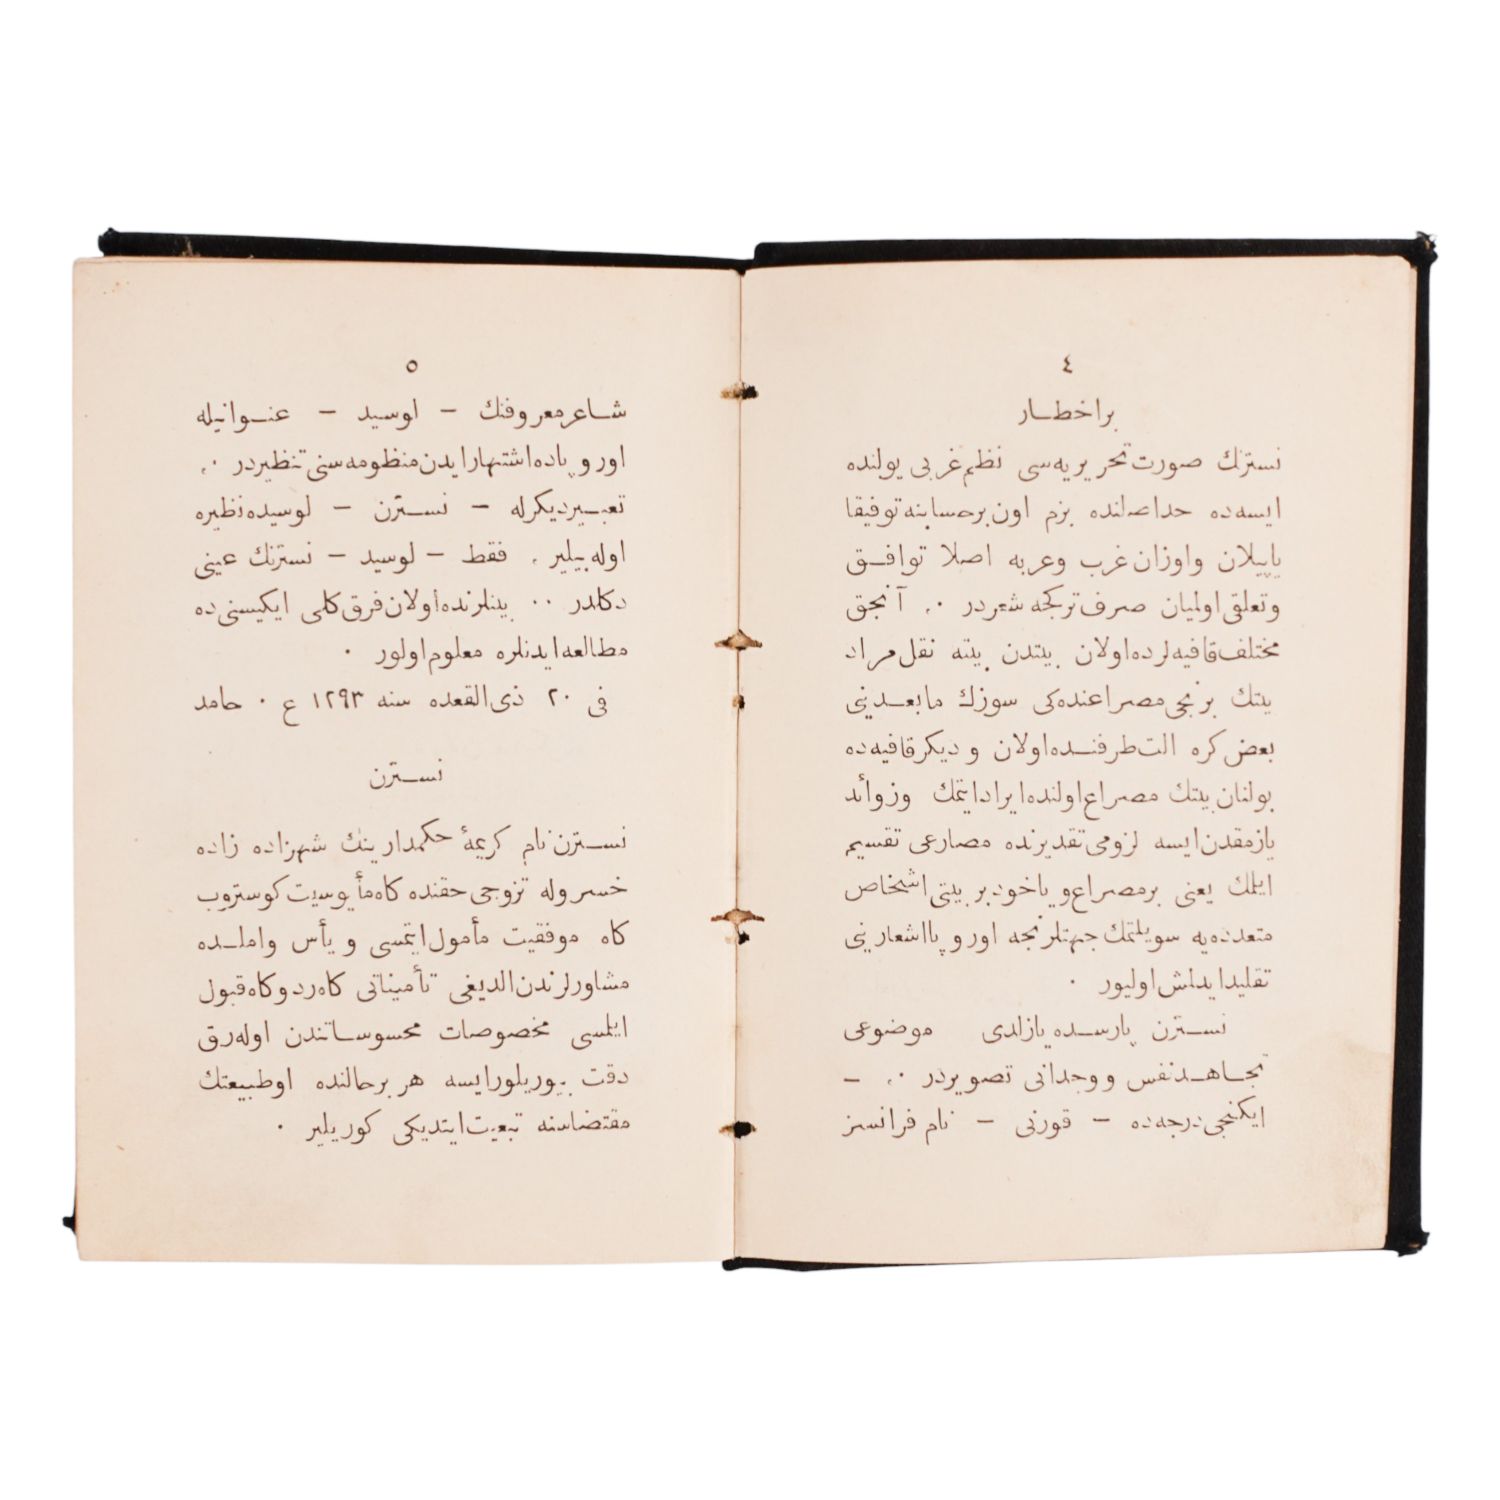 ٤
بر اخطــار
نسترنك صورت تحريريه‌سى نظم غربى يولنده
ايسه‌ده حد اصلنده بزم اون بر حسابنه توفيقا
ياپيلان و اوزان غرب و عربه اصلا توافــق
و تعلقى اولميان صرف تركجه شعردر ٠، آنجق
مختلف قافيه‌لرده اولان بيتدن بيته نقل مراد
بيتك برنجى مصراعنده‌كى سوزك مابعــدينى
بعض كره الت طرفنــده اولان و ديكر قافيه‌ده
بولنان بيتك مصراع اولنده ايراد ايتمك و زوائد
يازمقدن ايسه لزومى تقديرنده مصارعى تقسيم
ايلمك يعنى بر مصراع و ياخود بر بيتى اشخاص
متعدده‌يه سويلتمك جهتلرنجه اوروپا اشعارينى
تقليد ايدلمش اوليور ٠
نســترن پارســده يازلدى موضوعى
تجــاهــد نفس و وجدانى تصويردر ٠، –
ايكنجى درجه‌ده – قورنى – نام فرانسز
٥
شــاعر معروفنك – لوسيد – عنــوانيله
اوروپاده اشتهار ايدن منظومه‌سنى تنظيردر ٠،
تعبــير ديكرله – نســترن – لوسيده نظيره
اوله‌بيلير ، فقط – لوسيد – نسترنك عينى
دكلدر ٠٠ بينلرنده اولان فرق كلى ايكيسنى ده
مطالعه ايدنلره معلوم اولور ٠
فى ٢٠ ذى القعده سنه ١٢٩٣ ع ٠ حامد
نســترن
نســترن نام كريمهٔ حكمدارينك شهزاده زاده
خسروله تزوجى حقنده كاه مأيوسيت كوستروب
كاه موفقيت مأمول ايتمسى و يأس و املــده
مشاورلرندن الديغى تأميناتى كاه رد و كاه قبول
ايلمسى مخصوصات محسوســاتندن اوله‌رق
دقت بيوريلور ايسه هر بر حالنده او طبيعتك
مقتضاسنه تبعيت ايتديكى كوريلير ٠